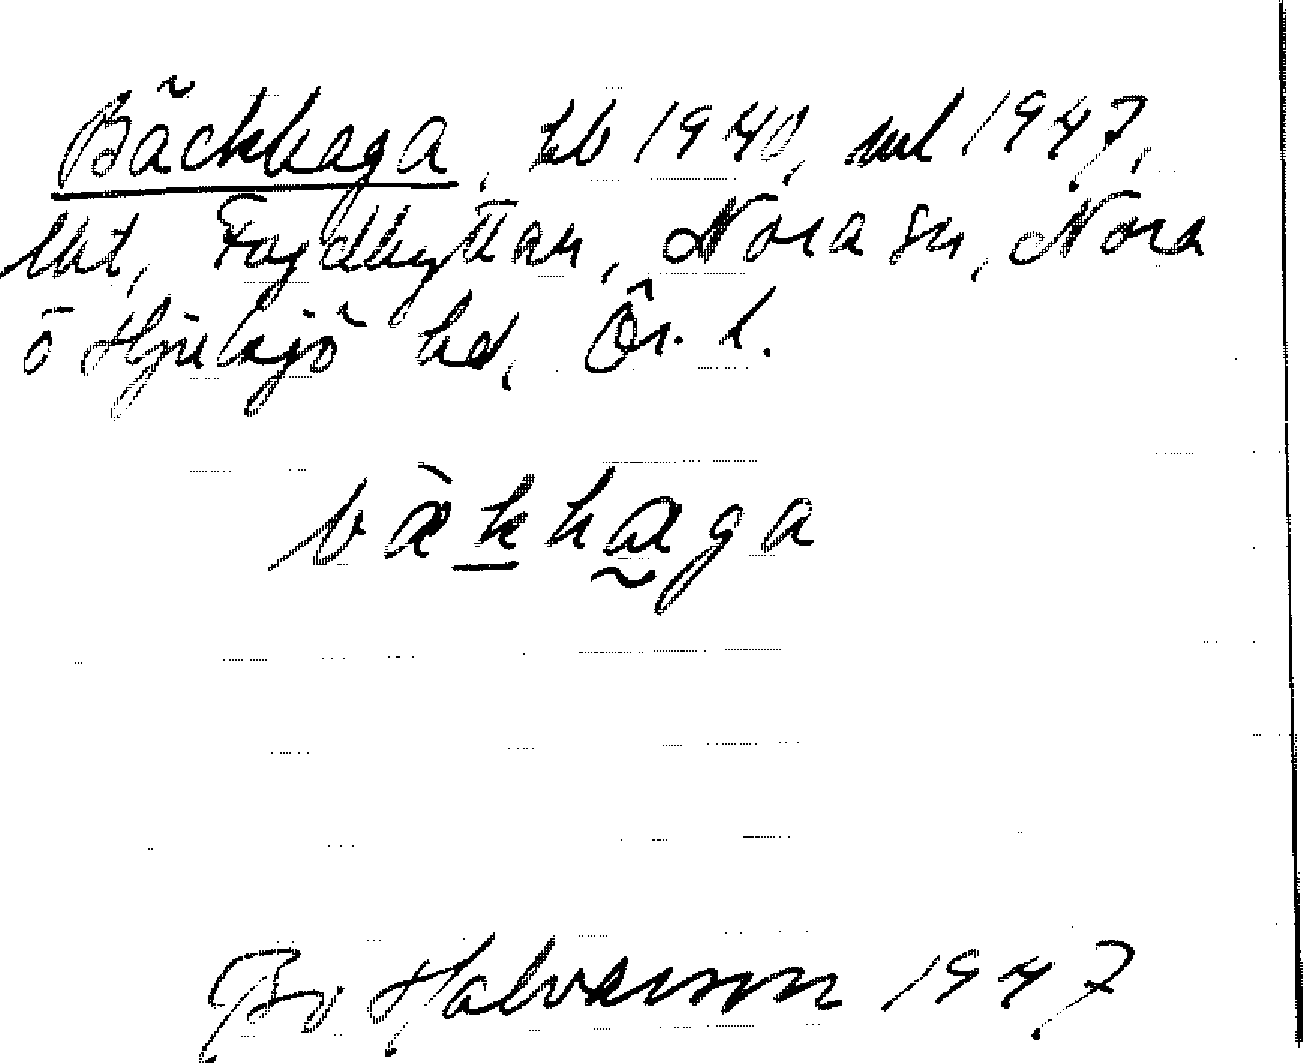 Bäckhaga, kb 1940, ml 1947,
lht, Fogdhyttan, Nora sn, Nora
o Hjulsjö hd, Ör. l.
bàkhaga
Bo Halvarson 1947